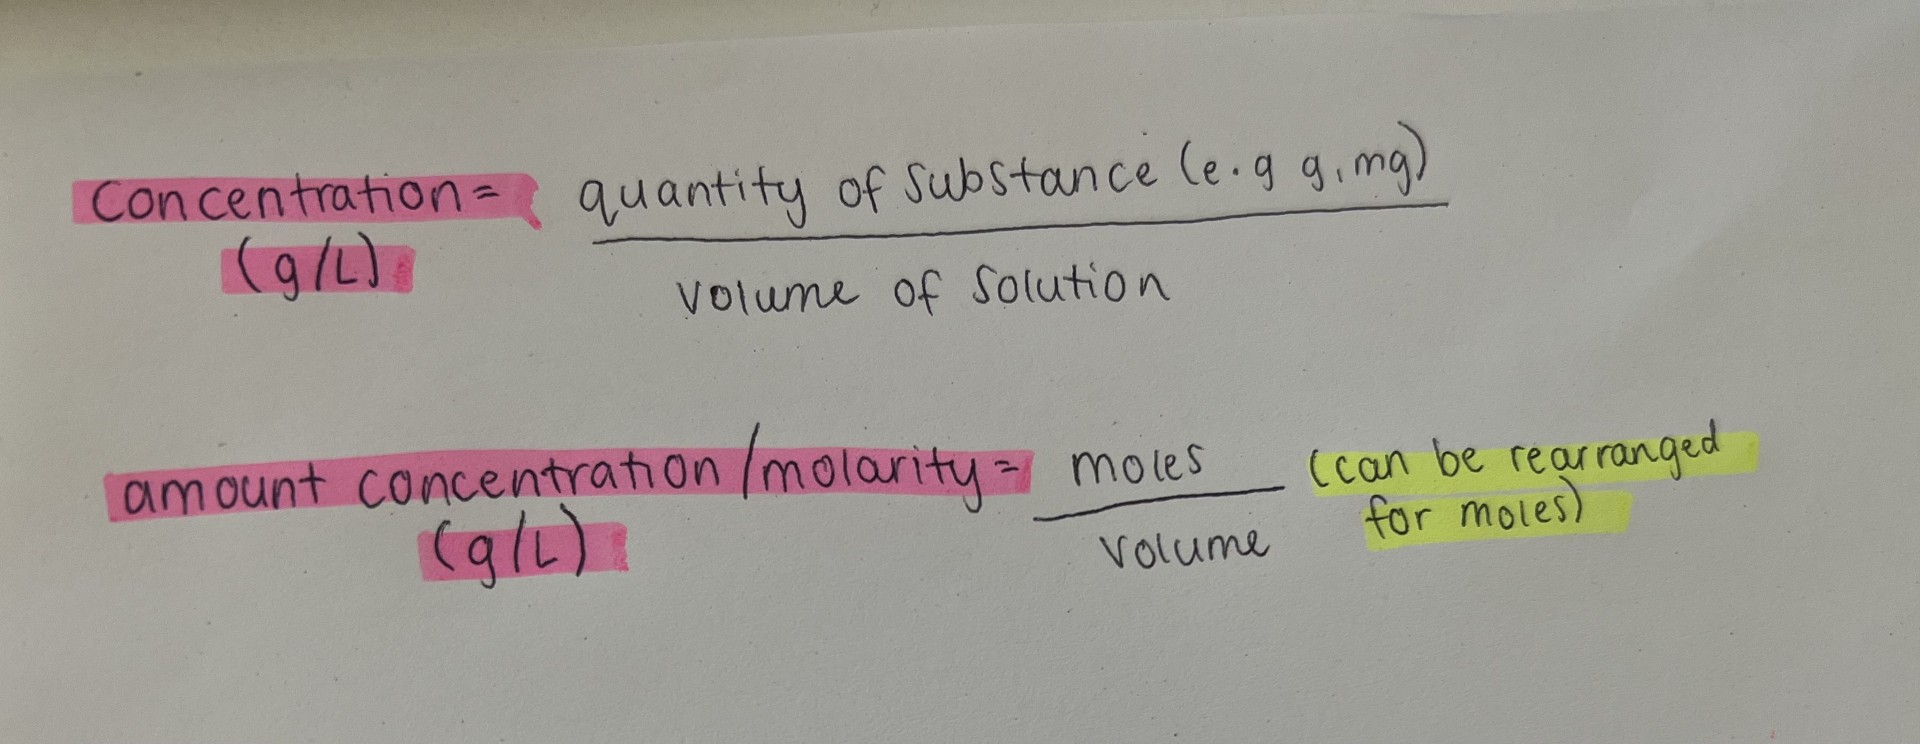 concentration = quantity of substance (e.g g, mg)
(g/L) volume of solution
amount concentration/molarity = moles (can be rearranged
for moles)
(g/L) volume